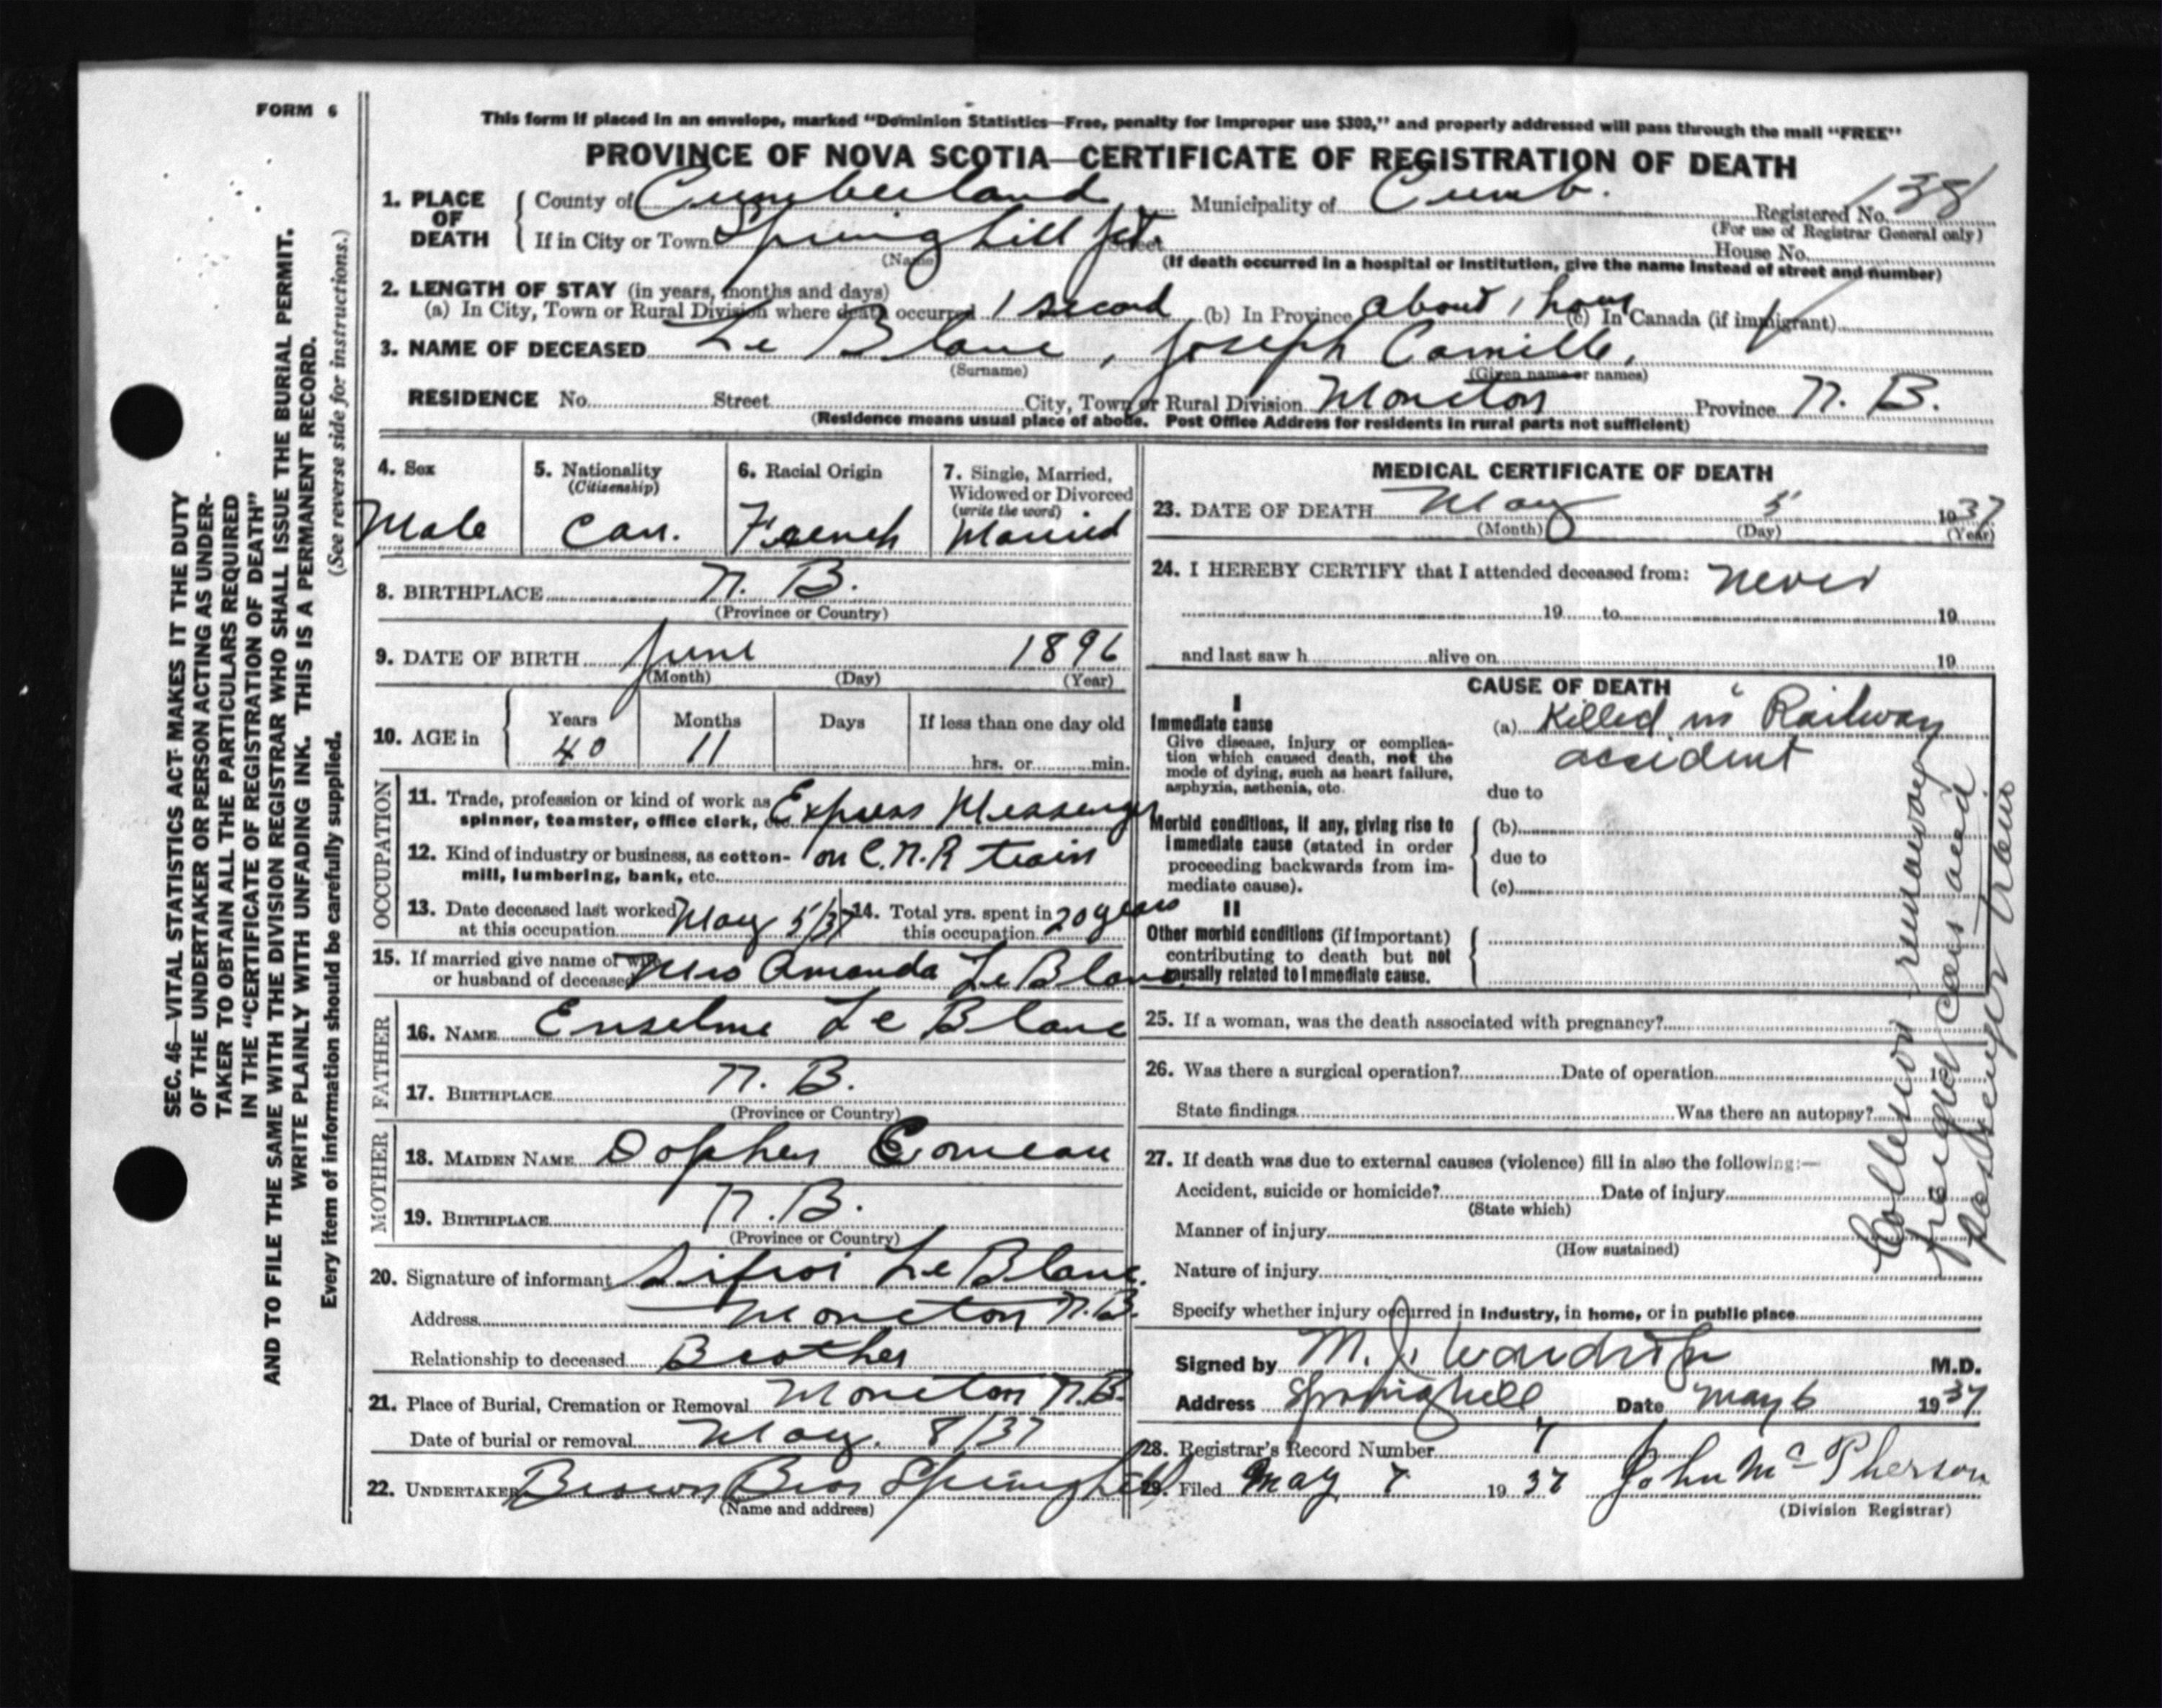 FORM 6
This form if placed in an envelope, marked "Dominion Statistics—Free, penalty for improper use $300," and properly addressed will pass through the mail "FREE"
PROVINCE OF NOVA SCOTIA—CERTIFICATE OF REGISTRATION OF DEATH
1. PLACE OF DEATH County of Cumberland Municipality of Cumb. Registered No. 138
(For use of Registrar General only)
If in City or Town Springhill Jct. Street House No.
(Name) (If death occurred in a hospital or institution, give the name instead of street and number)
2. LENGTH OF STAY (in years, months and days)
(a) In City, Town or Rural Division where death occurred 1 second (b) In Province about 1 hour (c) In Canada (if immigrant)
3. NAME OF DECEASED Le Blanc, Joseph Camille,
(Surname) (Given name or names)
RESIDENCE No. Street City, Town or Rural Division Moncton Province N. B.
(Residence means usual place of abode. Post Office Address for residents in rural parts not sufficient)
4. Sex
Male
5. Nationality
(Citizenship)
Can.
6. Racial Origin
French
7. Single, Married,
Widowed or Divorced
(write the word)
Married
8. BIRTHPLACE N. B.
(Province or Country)
9. DATE OF BIRTH June 1896
(Month) (Day) (Year)
10. AGE in Years Months Days If less than one day old
40 11 hrs. or min.
OCCUPATION
11. Trade, profession or kind of work as Express Messenger
spinner, teamster, office clerk, etc.
12. Kind of industry or business, as cotton- on C.N.R train
mill, lumbering, bank, etc.
13. Date deceased last worked at this occupation May 5/37
14. Total yrs. spent in this occupation 20 years
15. If married give name of wife
or husband of deceased Mrs Amanda Le Blanc
FATHER
16. NAME Enselme Le Blanc
17. BIRTHPLACE N. B.
(Province or Country)
MOTHER
18. MAIDEN NAME Comeau
19. BIRTHPLACE N.B.
(Province or Country)
20. Signature of informant Le Blanc.
Address Moncton N.B.
Relationship to deceased Brother
21. Place of Burial, Cremation or Removal Moncton N.B.
Date of burial or removal May. 8/37
22. UNDERTAKER Brown Bros Springhill
(Name and address)
MEDICAL CERTIFICATE OF DEATH
23. DATE OF DEATH May 5 1937
(Month) (Day) (Year)
24. I HEREBY CERTIFY that I attended deceased from: never
19 to 19
and last saw h alive on 19
CAUSE OF DEATH
I
Immediate cause
Give disease, injury or complica-
tion which caused death, not the
mode of dying, such as heart failure,
asphyxia, asthenia, etc.
(a) Killed in Railway
accident
due to
Morbid conditions, if any, giving rise to
immediate cause (stated in order
proceeding backwards from im-
mediate cause).
(b)
due to
(c)
II
Other morbid conditions (if important)
contributing to death but not
causally related to immediate cause.
25. If a woman, was the death associated with pregnancy?
26. Was there a surgical operation? Date of operation 19
State findings Was there an autopsy?
27. If death was due to external causes (violence) fill in also the following:—
Accident, suicide or homicide? Date of injury 19
(State which)
Manner of injury
(How sustained)
Nature of injury
Specify whether injury occurred in industry, in home, or in public place
Signed by M. J. Wardrope M.D.
Address Springhill Date May 6 1937
28. Registrar's Record Number 7
29. Filed May 7 1937 John McPherson
(Division Registrar)
Collision runaway
freight cars and
passenger train
SEC. 46—VITAL STATISTICS ACT MAKES IT THE DUTY
OF THE UNDERTAKER OR PERSON ACTING AS UNDER-
TAKER TO OBTAIN ALL THE PARTICULARS REQUIRED
IN THE "CERTIFICATE OF REGISTRATION OF DEATH"
AND TO FILE THE SAME WITH THE DIVISION REGISTRAR WHO SHALL ISSUE THE BURIAL PERMIT.
WRITE PLAINLY WITH UNFADING INK. THIS IS A PERMANENT RECORD.
Every item of information should be carefully supplied. (See reverse side for instructions.)